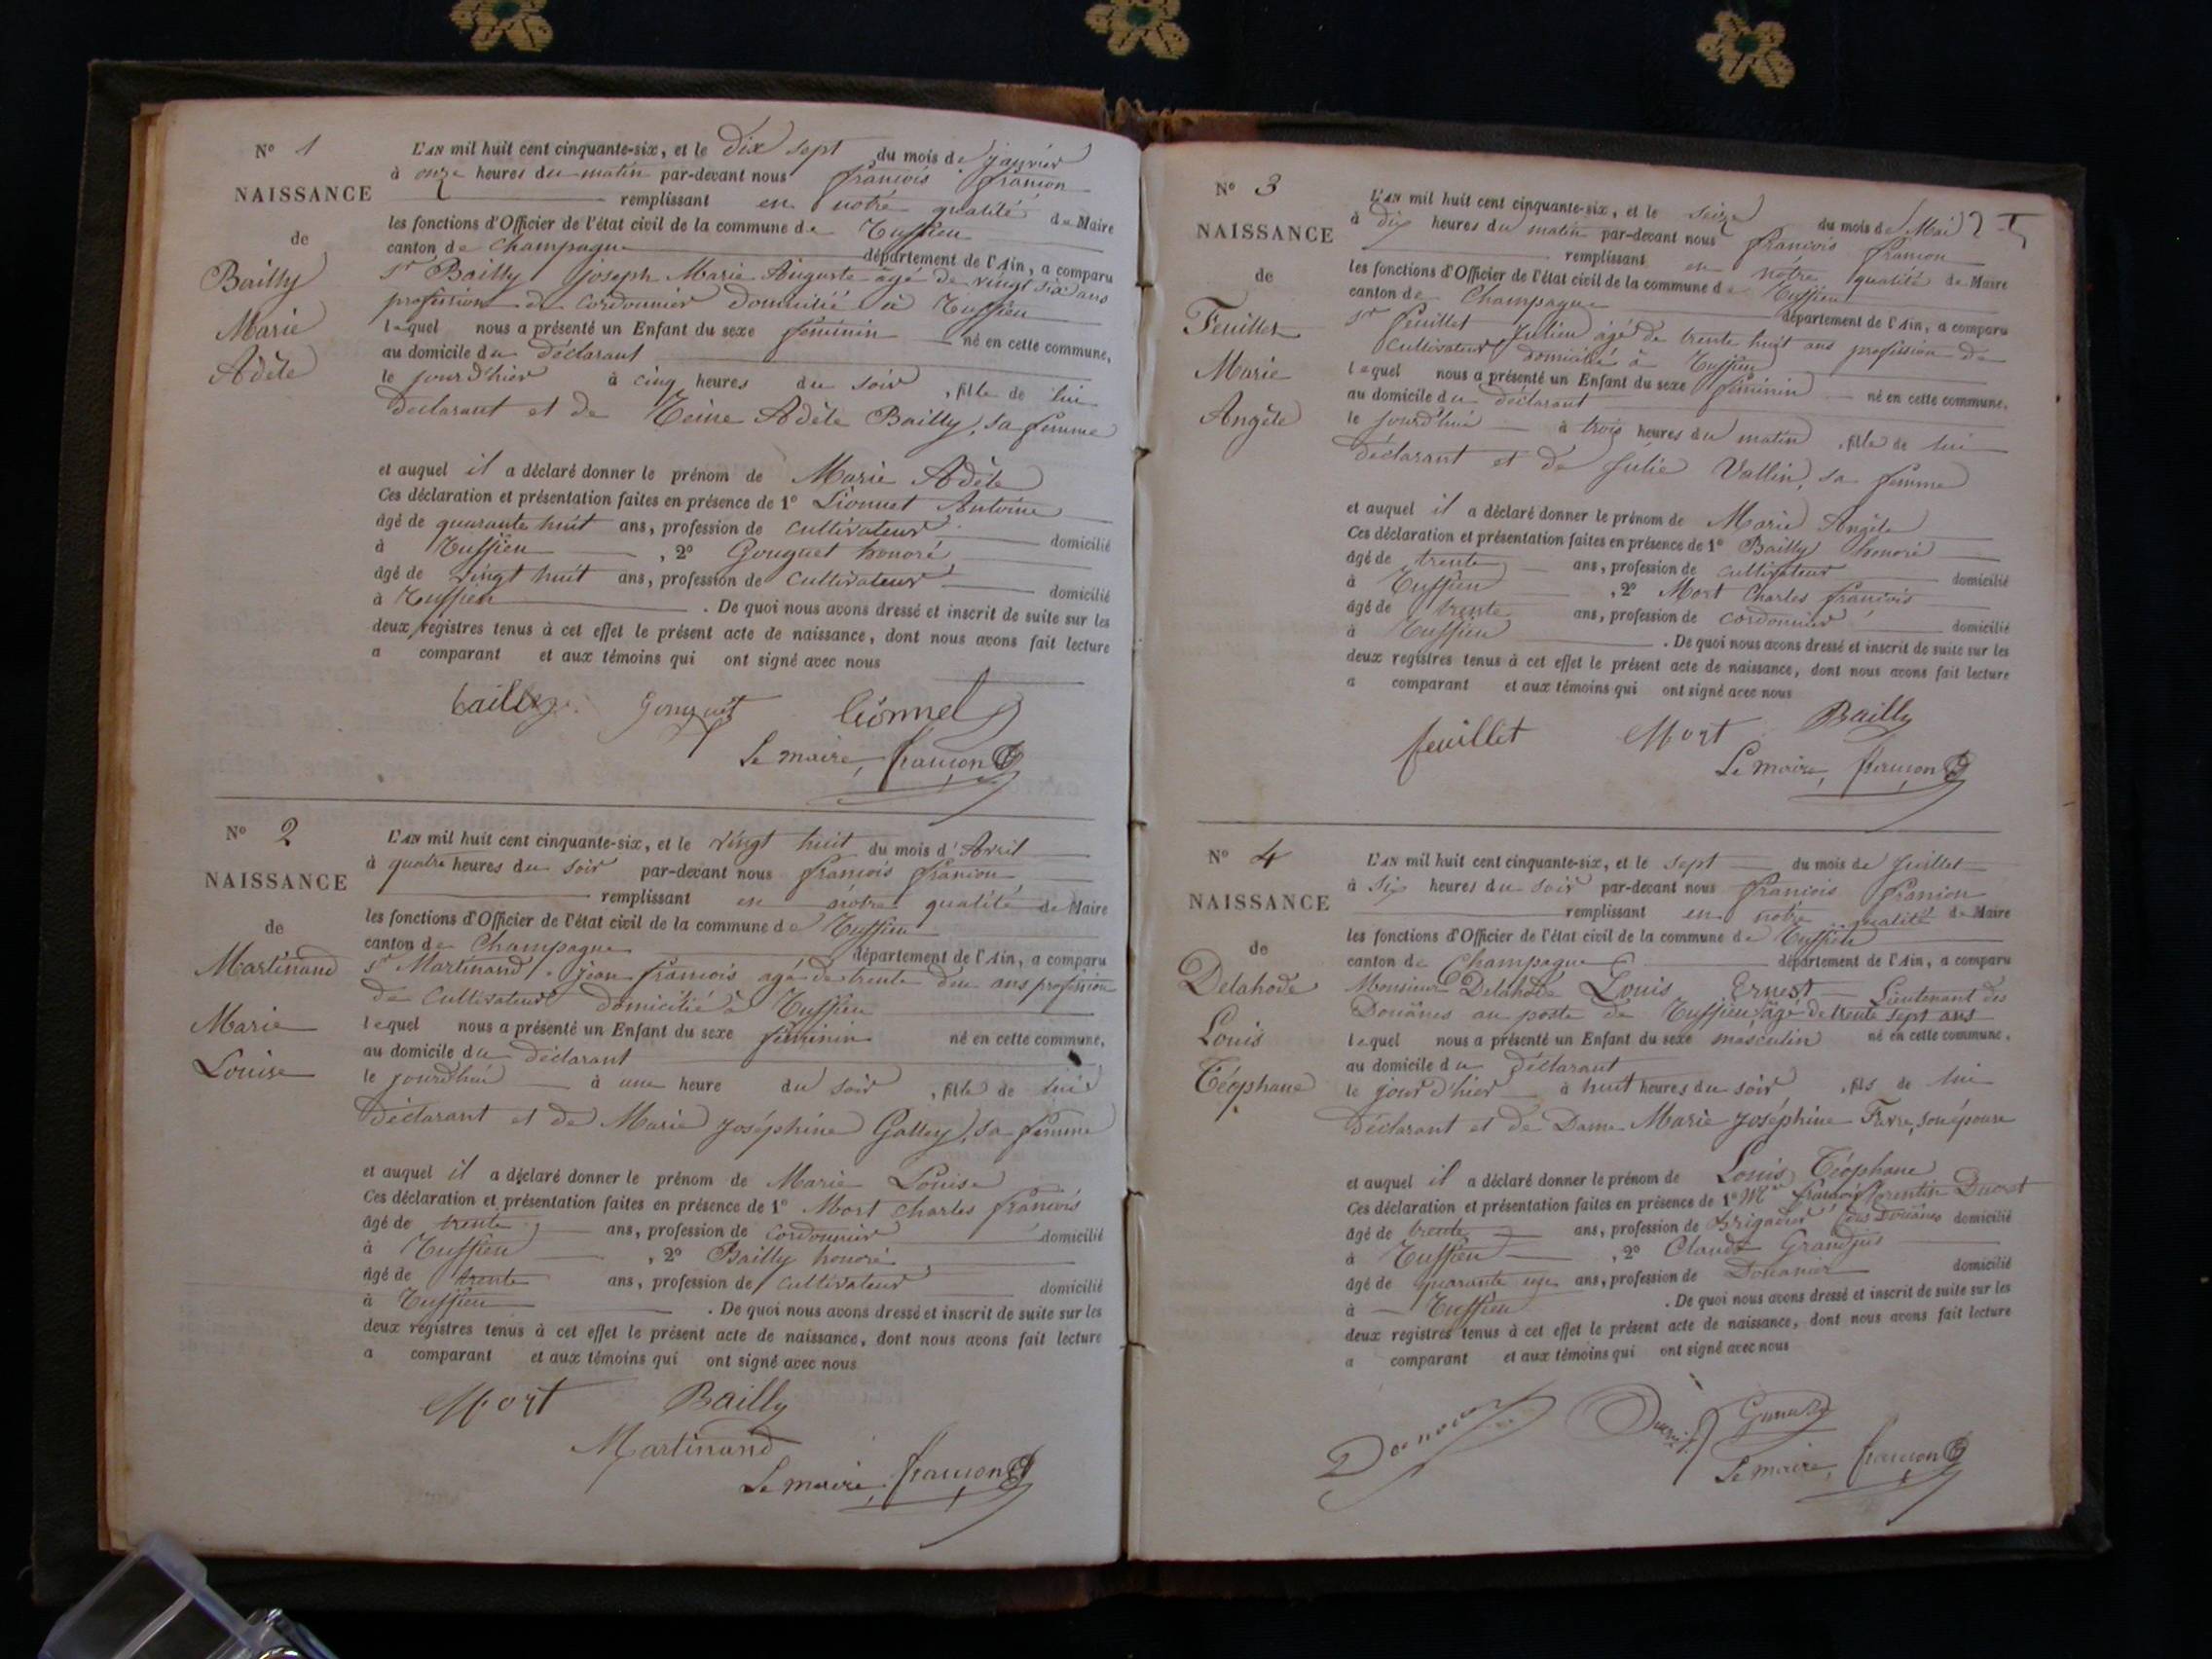 N° 1
NAISSANCE
de
Bailly
Marie
Adèle
L'AN mil huit cent cinquante-six, et le dix sept du mois de janvier
à onze heures du matin par-devant nous françois francon
remplissant en notre qualité de Maire
les fonctions d'Officier de l'état civil de la commune de Ruffieu
canton de Champagne département de l'Ain, a comparu
Sr Bailly joseph Marie Auguste âgé de vingt six ans
profession de cordonnier domicilié à Ruffieu
lequel nous a présenté un Enfant du sexe féminin né en cette commune,
au domicile du déclarant
le jourd'hier à cinq heures du soir, fille de lui
déclarant et de Reine Adèle Bailly, sa femme
et auquel il a déclaré donner le prénom de Marie Adèle
Ces déclaration et présentation faites en présence de 1° Lionnet Antoine
âgé de quarante huit ans, profession de cultivateur domicilié
à Ruffieu, 2° Gouguet honoré
âgé de vingt huit ans, profession de cultivateur domicilié
à Ruffieu. De quoi nous avons dressé et inscrit de suite sur les
deux registres tenus à cet effet le présent acte de naissance, dont nous avons fait lecture
a comparant et aux témoins qui ont signé avec nous
bailly gouguet lionnet
Le maire, francon
N° 2
NAISSANCE
de
Martinand
Marie
Louise
L'AN mil huit cent cinquante-six, et le vingt huit du mois d'Avril
à quatre heures du soir par-devant nous françois francon
remplissant en nôtre qualité de Maire
les fonctions d'Officier de l'état civil de la commune de Ruffieu
canton de Champagne département de l'Ain, a comparu
Sr Martinand jean françois agé de trente deu ans profession
de cultivateur domicilié à Ruffieu
lequel nous a présenté un Enfant du sexe féminin né en cette commune,
au domicile du déclarant
le jourd'hui à une heure du soir, fille de lui
déclarant et de Marie joséphine Galley, sa femme
et auquel il a déclaré donner le prénom de Marie Louise
Ces déclaration et présentation faites en présence de 1° Mort charles françois
âgé de trente ans, profession de cordonnier domicilié
à Ruffieu, 2° Bailly honoré
âgé de trente ans, profession de cultivateur domicilié
à Ruffieu. De quoi nous avons dressé et inscrit de suite sur les
deux registres tenus à cet effet le présent acte de naissance, dont nous avons fait lecture
a comparant et aux témoins qui ont signé avec nous
Mort Bailly
Martinand
Le maire, francon
N° 3
NAISSANCE
de
Feuillet
Marie
Angèle
L'AN mil huit cent cinquante-six, et le seize du mois de Mai
à dix heures du matin par-devant nous françois francon
remplissant en nôtre qualité de Maire
les fonctions d'Officier de l'état civil de la commune de Ruffieu
canton de Champagne département de l'Ain, a comparu
Sr feuillet Julien âgé de trente huit ans profession de
cultivateur domicilié à Ruffieu
lequel nous a présenté un Enfant du sexe féminin né en cette commune,
au domicile du déclarant
le jourd'hui à trois heures du matin, fille de lui
déclarant et de Julie Vallin, sa femme
et auquel il a déclaré donner le prénom de Marie Angèle
Ces déclaration et présentation faites en présence de 1° Bailly honoré
âgé de trente ans, profession de cultivateur domicilié
à Ruffieu, 2° Mort Charles françois
âgé de trente ans, profession de cordonnier domicilié
à Ruffieu. De quoi nous avons dressé et inscrit de suite sur les
deux registres tenus à cet effet le présent acte de naissance, dont nous avons fait lecture
a comparant et aux témoins qui ont signé avec nous
feuillet Mort Bailly
Le maire, francon
N° 4
NAISSANCE
de
Delahode
Louis
Téophane
L'AN mil huit cent cinquante-six, et le sept du mois de Juillet
à six heures du soir par-devant nous françois francon
remplissant en nôtre qualité de Maire
les fonctions d'Officier de l'état civil de la commune de Ruffieu
canton de Champagne département de l'Ain, a comparu
Monsieur Delahode Louis Ernest Lieutenant des
Douânes au poste de Ruffieu âgé de trente sept ans
lequel nous a présenté un Enfant du sexe masculin né en cette commune,
au domicile du déclarant
le jour d'hier à huit heures du soir, fils de lui
déclarant et de Dame Marie joséphine Favre, son épouse
et auquel il a déclaré donner le prénom de Louis Téophane
Ces déclaration et présentation faites en présence de 1° françois florentin
âgé de trente ans, profession de Brigadier des Douânes domicilié
à Ruffieu, 2° Claude
âgé de quarante ans, profession de Douanier domicilié
à Ruffieu. De quoi nous avons dressé et inscrit de suite sur les
deux registres tenus à cet effet le présent acte de naissance, dont nous avons fait lecture
a comparant et aux témoins qui ont signé avec nous
Le maire, francon